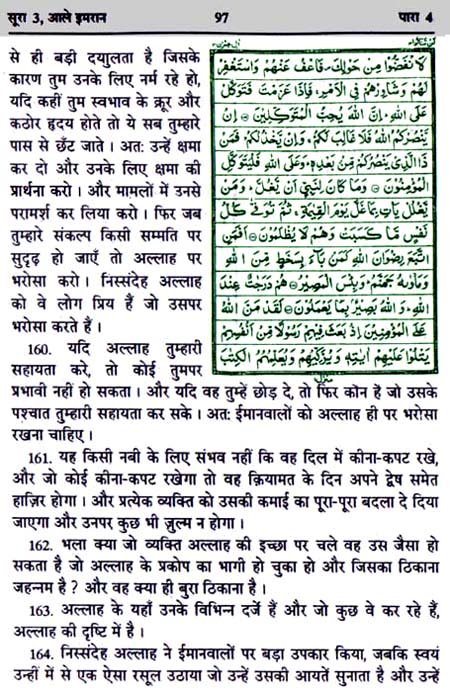 सूरा 3, आले इमरान 97 पारा 4
से ही बड़ी दयालुता है जिसके
कारण तुम उनके लिए नर्म रहे हो,
यदि कहीं तुम स्वभाव के क्रूर और
कठोर हृदय होते तो ये सब तुम्हारे
पास से छँट जाते । अत: उन्हें क्षमा
कर दो और उनके लिए क्षमा की
प्रार्थना करो । और मामलों में उनसे
परामर्श कर लिया करो । फिर जब
तुम्हारे संकल्प किसी सम्मति पर
सुदृढ़ हो जाएँ तो अल्लाह पर
भरोसा करो । निस्संदेह अल्लाह
को वे लोग प्रिय हैं जो उसपर
भरोसा करते हैं ।
160. यदि अल्लाह तुम्हारी
सहायता करे, तो कोई तुमपर
प्रभावी नहीं हो सकता । और यदि वह तुम्हें छोड़ दे, तो फिर कौन है जो उसके
पश्चात तुम्हारी सहायता कर सके । अत: ईमानवालों को अल्लाह ही पर भरोसा
रखना चाहिए ।
لَانْفَضُّوْا مِنْ حَوْلِكَ فَاعْفُ عَنْهُمْ وَاسْتَغْفِرْ
لَهُمْ وَشَاوِرْهُمْ فِي الْاَمْرِ فَاِذَا عَزَمْتَ فَتَوَكَّلْ
عَلَى اللهِ اِنَّ اللهَ يُحِبُّ الْمُتَوَكِّلِيْنَ اِنْ
يَّنْصُرْكُمُ اللهُ فَلَا غَالِبَ لَكُمْ وَاِنْ يَّخْذُلْكُمْ فَمَنْ
ذَا الَّذِيْ يَنْصُرُكُمْ مِّنْ بَعْدِهٖ وَعَلَى اللهِ فَلْيَتَوَكَّلِ
الْمُؤْمِنُوْنَ وَمَا كَانَ لِنَبِيٍّ اَنْ يَّغُلَّ وَمَنْ
يَّغْلُلْ يَاْتِ بِمَا غَلَّ يَوْمَ الْقِيٰمَةِ ثُمَّ تُوَفّٰى كُلُّ
نَفْسٍ مَّا كَسَبَتْ وَهُمْ لَا يُظْلَمُوْنَ اَفَمَنِ
اتَّبَعَ رِضْوَانَ اللهِ كَمَنْ بَاءَ بِسَخَطٍ مِّنَ اللهِ
وَمَاْوٰىهُ جَهَنَّمُ وَبِئْسَ الْمَصِيْرُ هُمْ دَرَجٰتٌ عِنْدَ
اللهِ وَاللهُ بَصِيْرٌ بِمَا يَعْمَلُوْنَ لَقَدْ مَنَّ اللهُ
عَلَى الْمُؤْمِنِيْنَ اِذْ بَعَثَ فِيْهِمْ رَسُوْلًا مِّنْ اَنْفُسِهِمْ
يَتْلُوْا عَلَيْهِمْ اٰيٰتِهٖ وَيُزَكِّيْهِمْ وَيُعَلِّمُهُمُ الْكِتٰبَ
منزل
161. यह किसी नबी के लिए संभव नहीं कि वह दिल में कीना-कपट रखे,
और जो कोई कीना-कपट रखेगा तो वह क़ियामत के दिन अपने द्वेष समेत
हाज़िर होगा । और प्रत्येक व्यक्ति को उसकी कमाई का पूरा-पूरा बदला दे दिया
जाएगा और उनपर कुछ भी ज़ुल्म न होगा ।
162. भला क्या जो व्यक्ति अल्लाह की इच्छा पर चले वह उस जैसा हो
सकता है जो अल्लाह के प्रकोप का भागी हो चुका हो और जिसका ठिकाना
जहन्नम है ? और वह क्या ही बुरा ठिकाना है ।
163. अल्लाह के यहाँ उनके विभिन्न दर्जे हैं और जो कुछ वे कर रहे हैं,
अल्लाह की दृष्टि में है ।
164. निस्संदेह अल्लाह ने ईमानवालों पर बड़ा उपकार किया, जबकि स्वयं
उन्हीं में से एक ऐसा रसूल उठाया जो उन्हें उसकी आयतें सुनाता है और उन्हें